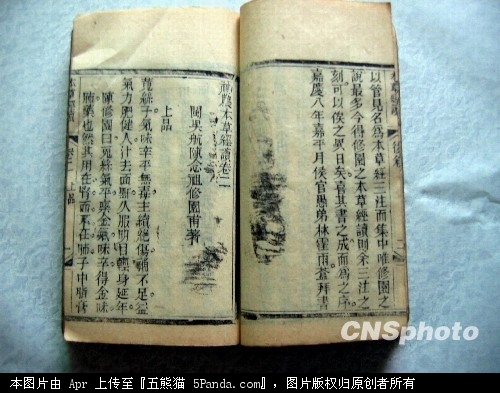 以管見名為本草經三注而集中唯修園之
說最多今得修園之本草經讀則余三注之
刻可以俟之異日矣喜其書之成而為之序
嘉慶八年嘉平月侯官愚弟林霔雨蒼拜書
神農本草經讀卷二
閩吳航陳念祖修園甫著
上品
菟絲子氣味辛平無毒主續絕傷補不足益
氣力肥健人汁去面䵟久服明目輕身延年
陳修園曰菟絲氣平稟金氣味辛得金味
肺藥也然其用在腎而不在肺子中脂膏
上品
CNSphoto
本图片由 Apr 上传至『五熊猫 5Panda.com』，图片版权归原创者所有